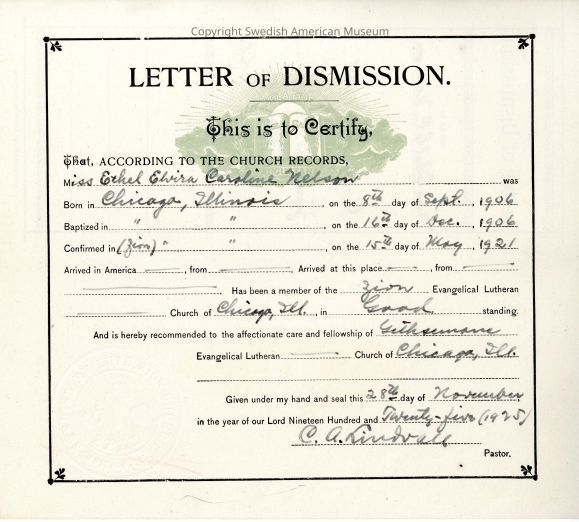 Copyright Swedish American Museum
LETTER OF DISMISSION.
This is to Certify,
That, ACCORDING TO THE CHURCH RECORDS,
Miss Ethel Elvira Caroline Nelson was
Born in Chicago, Illinois, on the 8th day of Sept., 1906
Baptized in " ", on the 16th day of Dec., 1906
Confirmed in (Zion) " ", on the 15th day of May, 1921
Arrived in America , from Arrived at this place , from
Has been a member of the Zion Evangelical Lutheran
Church of Chicago, Ill., in Good standing.
And is hereby recommended to the affectionate care and fellowship of Gethsemane
Evangelical Lutheran Church of Chicago, Ill.
Given under my hand and seal this 28th day of November
in the year of our Lord Nineteen Hundred and Twenty-five (1925)
C. A. Lindvall
Pastor.